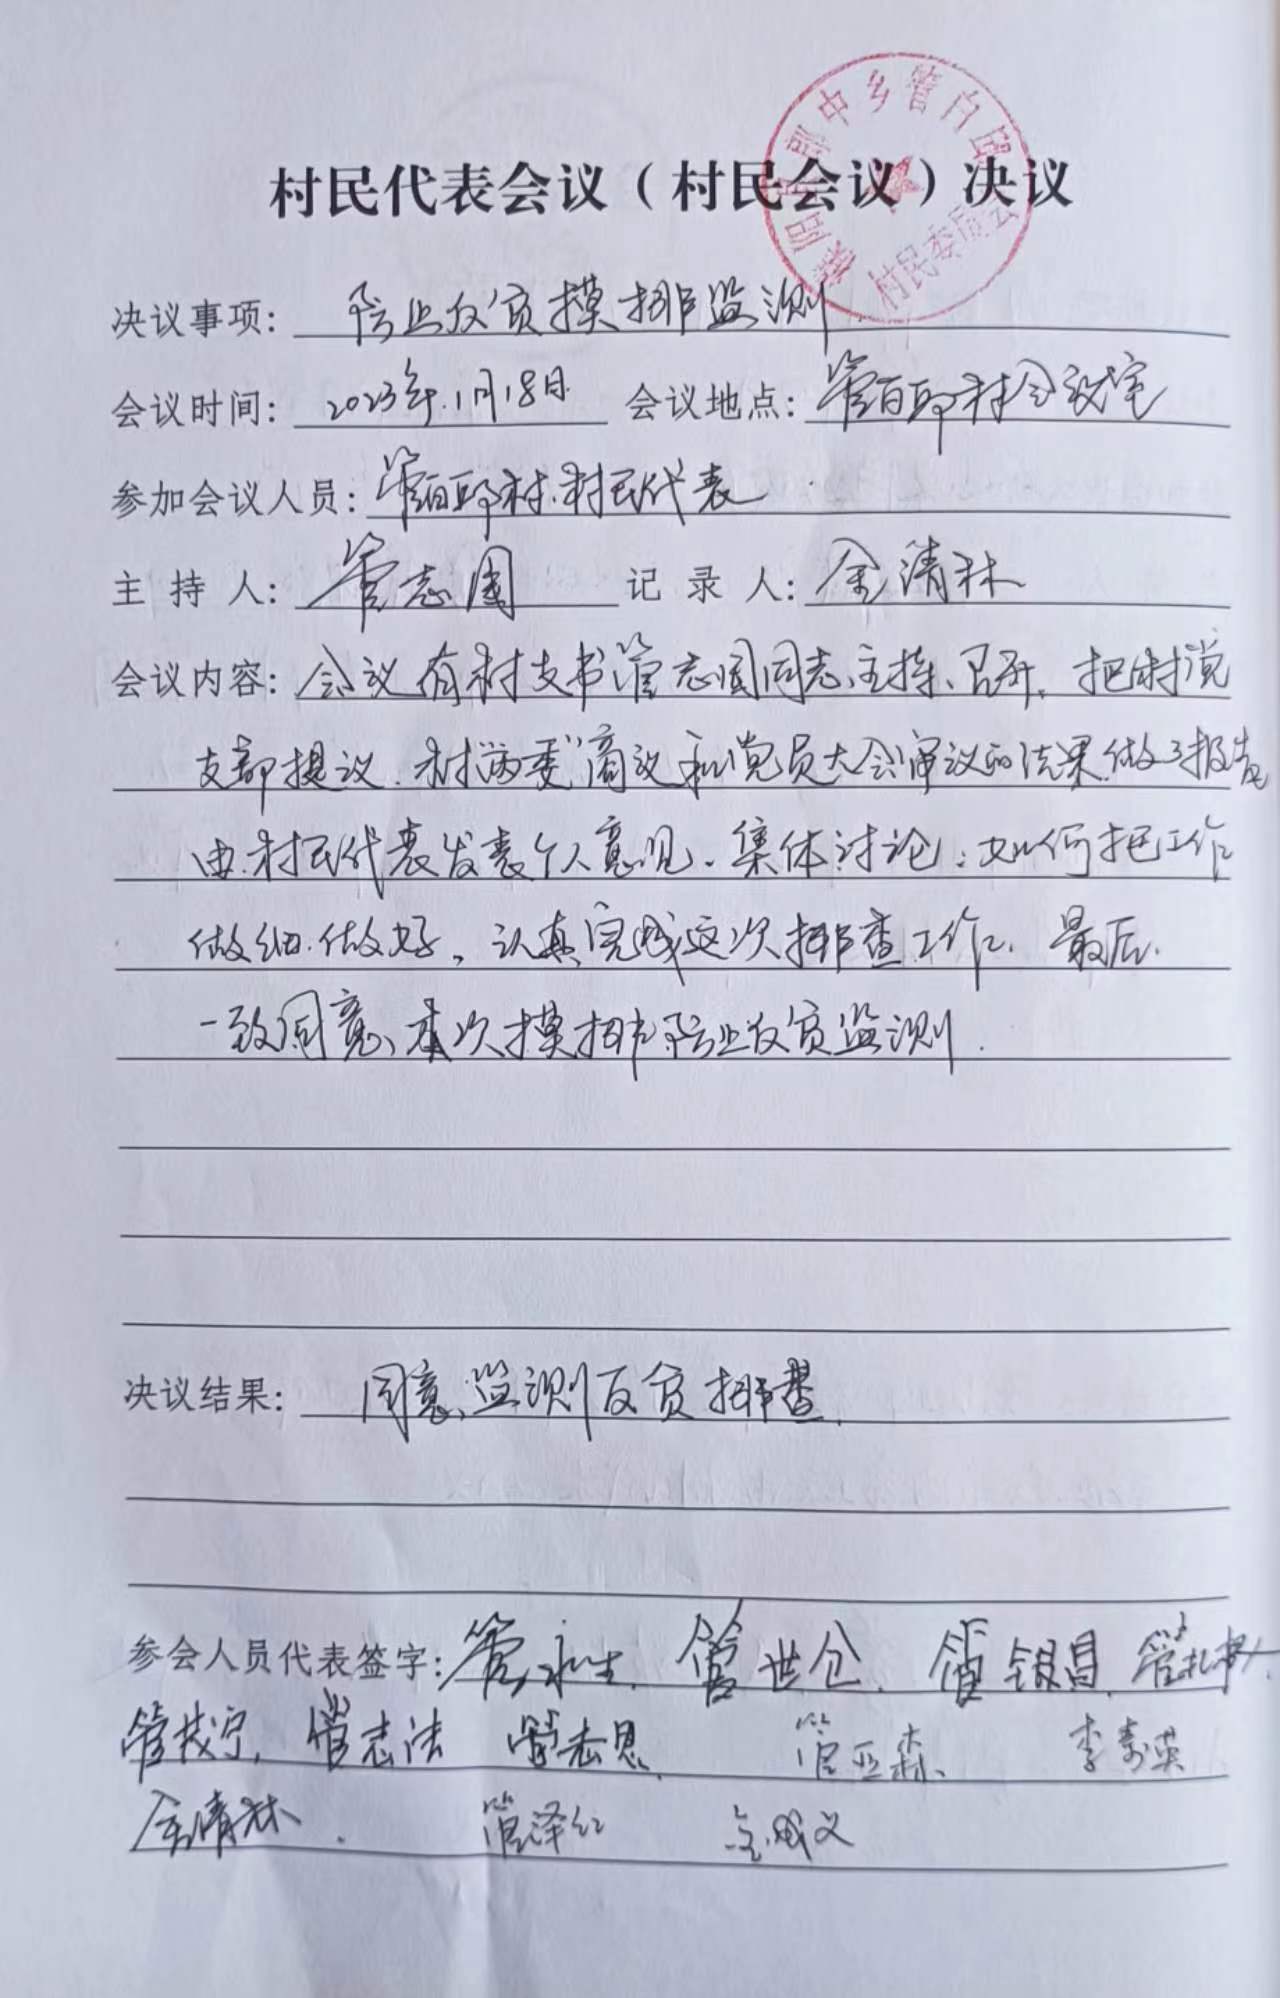 村民代表会议（村民会议）决议
村民委员会
决议事项： 防止返贫摸排监测
会议时间： 2023年.1月18日 会议地点： 管百邱村会议室
参加会议人员： 管百邱村.村民代表
主 持 人： 管志国 记 录 人： 金清林
会议内容： 会议有村支书管志国同志主持、召开，把村党
支部提议、村“两委”商议和党员大会审议的结果做了报告
由村民代表发表个人意见。集体讨论：如何把工作
做细.做好，认真完成这次排查工作、最后.
一致同意、本次摸排防止返贫监测.
决议结果： 同意、监测反贫排查.
参会人员代表签字： 管永生. 管世仓. 管银昌.
管志法 管亚森、 李素英
金清林. 管泽红 金成义